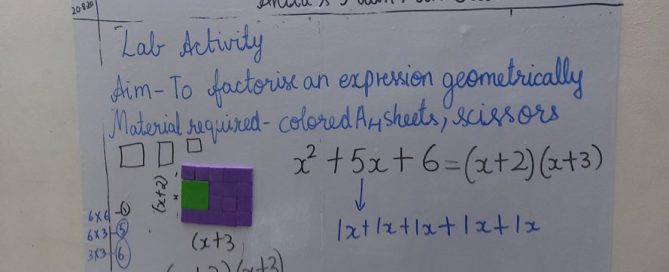 20820
Lab Activity
Aim- To factorise an expression geometrically
Material required- colored A4 sheets, scissors
x² + 5x + 6 = (x+2)(x+3)
1x+1x+1x+1x+1x
(x+2)
6x6
6x3 5
3x3 6
(x+3
(x+3)